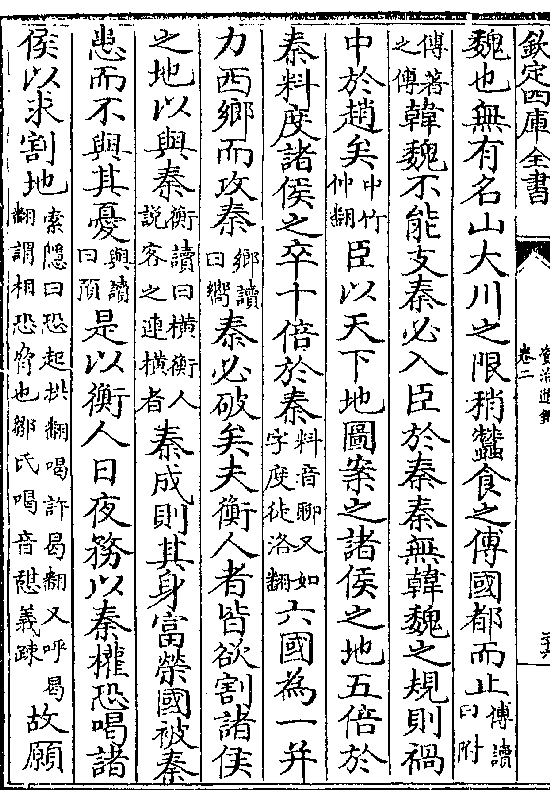 欽定四庫全書
資治通鑑
卷二
魏也無有名山大川之限稍蠶食之傅國都而止傅讀曰附
傅著之傅韓魏不能支秦必入臣於秦秦無韓魏之規則禍
中於趙矣中竹仲翻臣以天下地圖案之諸侯之地五倍於
秦料度諸侯之卒十倍於秦料音聊又如字度徒洛翻六國為一并
力西鄉而攻秦鄉讀曰嚮秦必破矣夫衡人者皆欲割諸侯
之地以與秦衡讀曰橫衡人說客之連橫者秦成則其身富榮國被秦
患而不與其憂與讀曰預是以衡人日夜務以秦權恐喝諸
侯以求割地索隱曰恐起拱翻喝許曷翻又呼曷翻謂相恐脅也鄒氏喝音憩義疎故願